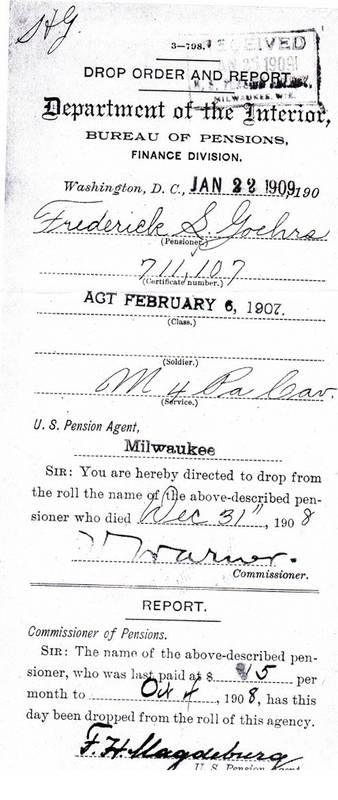 S H G.
3—798.
RECEIVED
JAN 25 1909
U. S. PENSION AGENCY,
MILWAUKEE, WIS.
DROP ORDER AND REPORT
Department of the Interior,
BUREAU OF PENSIONS,
FINANCE DIVISION.
Washington, D. C., JAN 22 1909, 190
Frederick S. Goehrs
(Pensioner.)
711,107
(Certificate number.)
ACT FEBRUARY 6, 1907.
(Class.)
(Soldier.)
M 4 Pa Cav.
(Service.)
U. S. Pension Agent,
Milwaukee
SIR: You are hereby directed to drop from
the roll the name of the above-described pen-
sioner who died Dec 31", 1908
V Warner.
Commissioner.
REPORT.
Commissioner of Pensions.
SIR: The name of the above-described pen-
sioner, who was last paid at $ 15 per
month to Oct 4, 1908, has this
day been dropped from the roll of this agency.
F. H. Magdeburg
U. S. Pension Agent